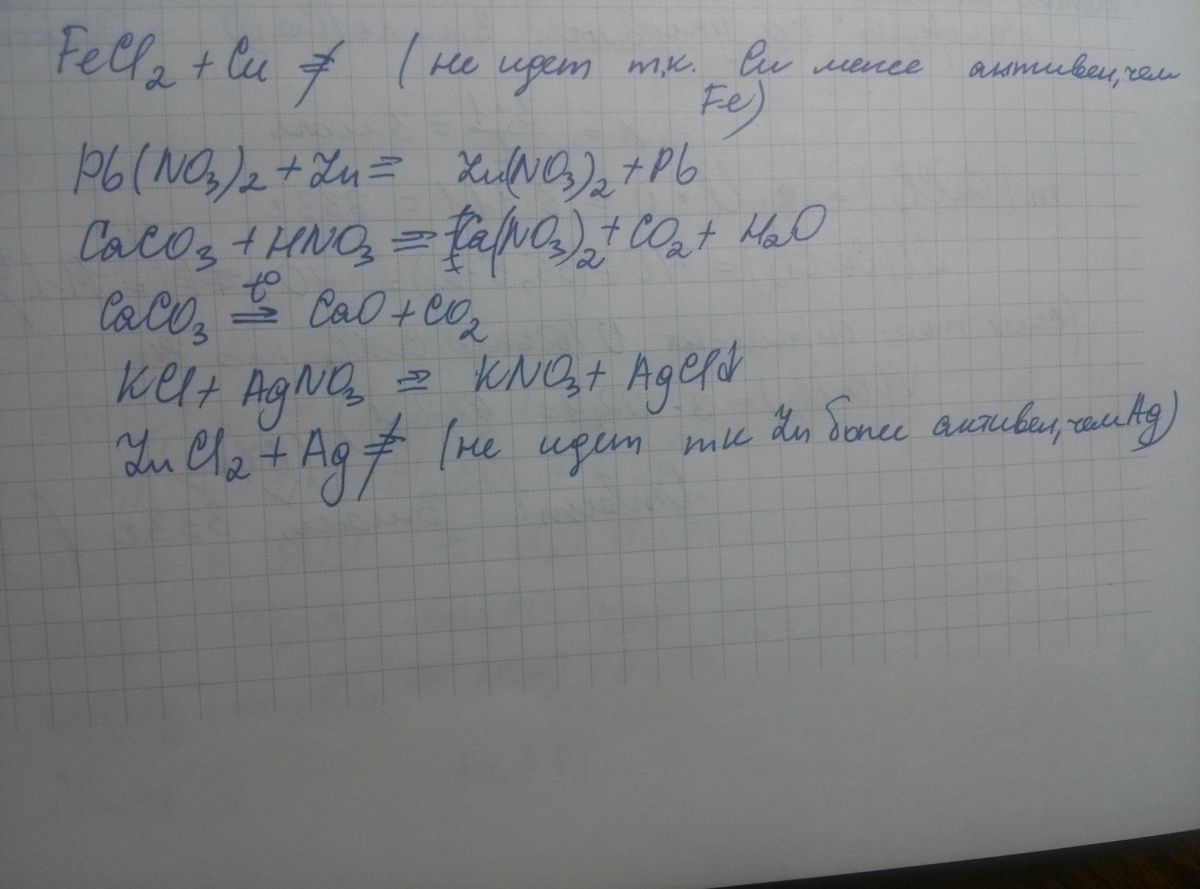 FeCl₂ + Cu ≠ (не идет т.к. Cu менее активен, чем
Fe)
Pb(NO₃)₂ + Zn = Zn(NO₃)₂ + Pb
CaCO₃ + HNO₃ = Ca(NO₃)₂ + CO₂ + H₂O
CaCO₃ =t°= CaO + CO₂
KCl + AgNO₃ = KNO₃ + AgCl↓
ZnCl₂ + Ag ≠ (не идет тк Zn более активен, чем Ag)